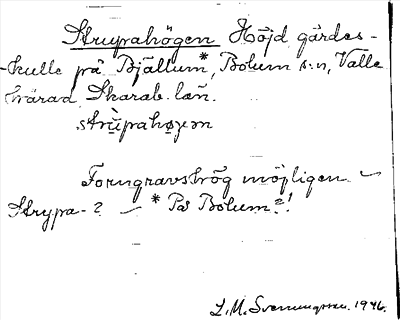 Strupahögen Höjd gärdes-
-kulle på Bjällum*, Bolum s:n, Valle
härad Skarab. län.
strùpahøgen
Forngravshög möjligen –
Strypa-? – * På Bolum?!
L.M. Svennungsson. 1946.